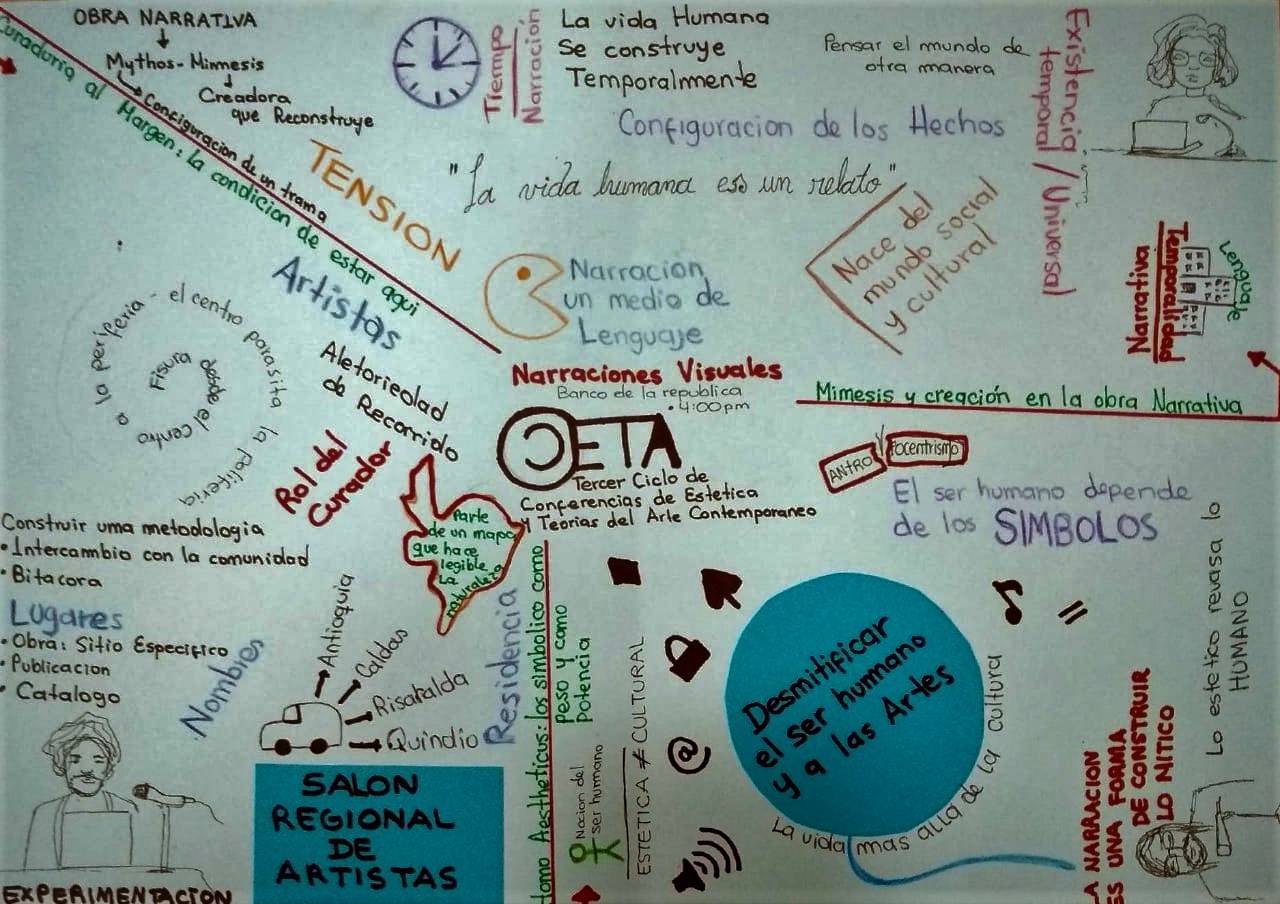 OBRA NARRATIVA
Mythos-Mimesis
Creadora
que Reconstruye
Configuracion de un trama
Curaduria al Margen: la condicion de estar aqui
TENSION
Tiempo
Narración
La vida Humana
Se construye
Temporalmente
Pensar el mundo de
otra manera
Configuracion de los Hechos
"La vida humana es un relato"
Existencia
temporal / Universal
Nace del
mundo social
y cultural
Narrativa
Temporalidad
Lenguaje
Narracion
un medio de
Lenguaje
Mimesis y creación en la obra Narrativa
Artistas
Aletoriedad
de Recorrido
Fisura desde el centro a la periferia - el centro parasita la poliferia
Rol del
Curador
Narraciones Visuales
Banco de la republica
• 4:00pm
CETA
Tercer Ciclo de
Conferencias de Estetica
y Teorias del Arte Contemporaneo
ANTRO
Y
Focentrismo
El ser humano depende
de los SIMBOLOS
Construir uma metodologia
• Intercambio con la comunidad
• Bitacora
Lugares
• Obra: Sitio Especifico
• Publicacion
• Catalogo
Nombres
Parte
de un mapa
que hace
legible
La
naturaleza
Antioquia
Caldas
Risaralda
Quindio
Residencia
SALON
REGIONAL
DE
ARTISTAS
EXPERIMENTACION
Homo Aestheticus: los simbolico como
Peso y como
Potencia
Nocion del
ser humano
ESTETICA ≠ CULTURAL
@
Desmitificar
el ser hummano
y a las Artes
La vida mas alla de la cultura
LA NARRACION
ES UNA FORMA
DE CONSTRUIR
LO NITICO
Lo estetico revasa lo
HUMANO